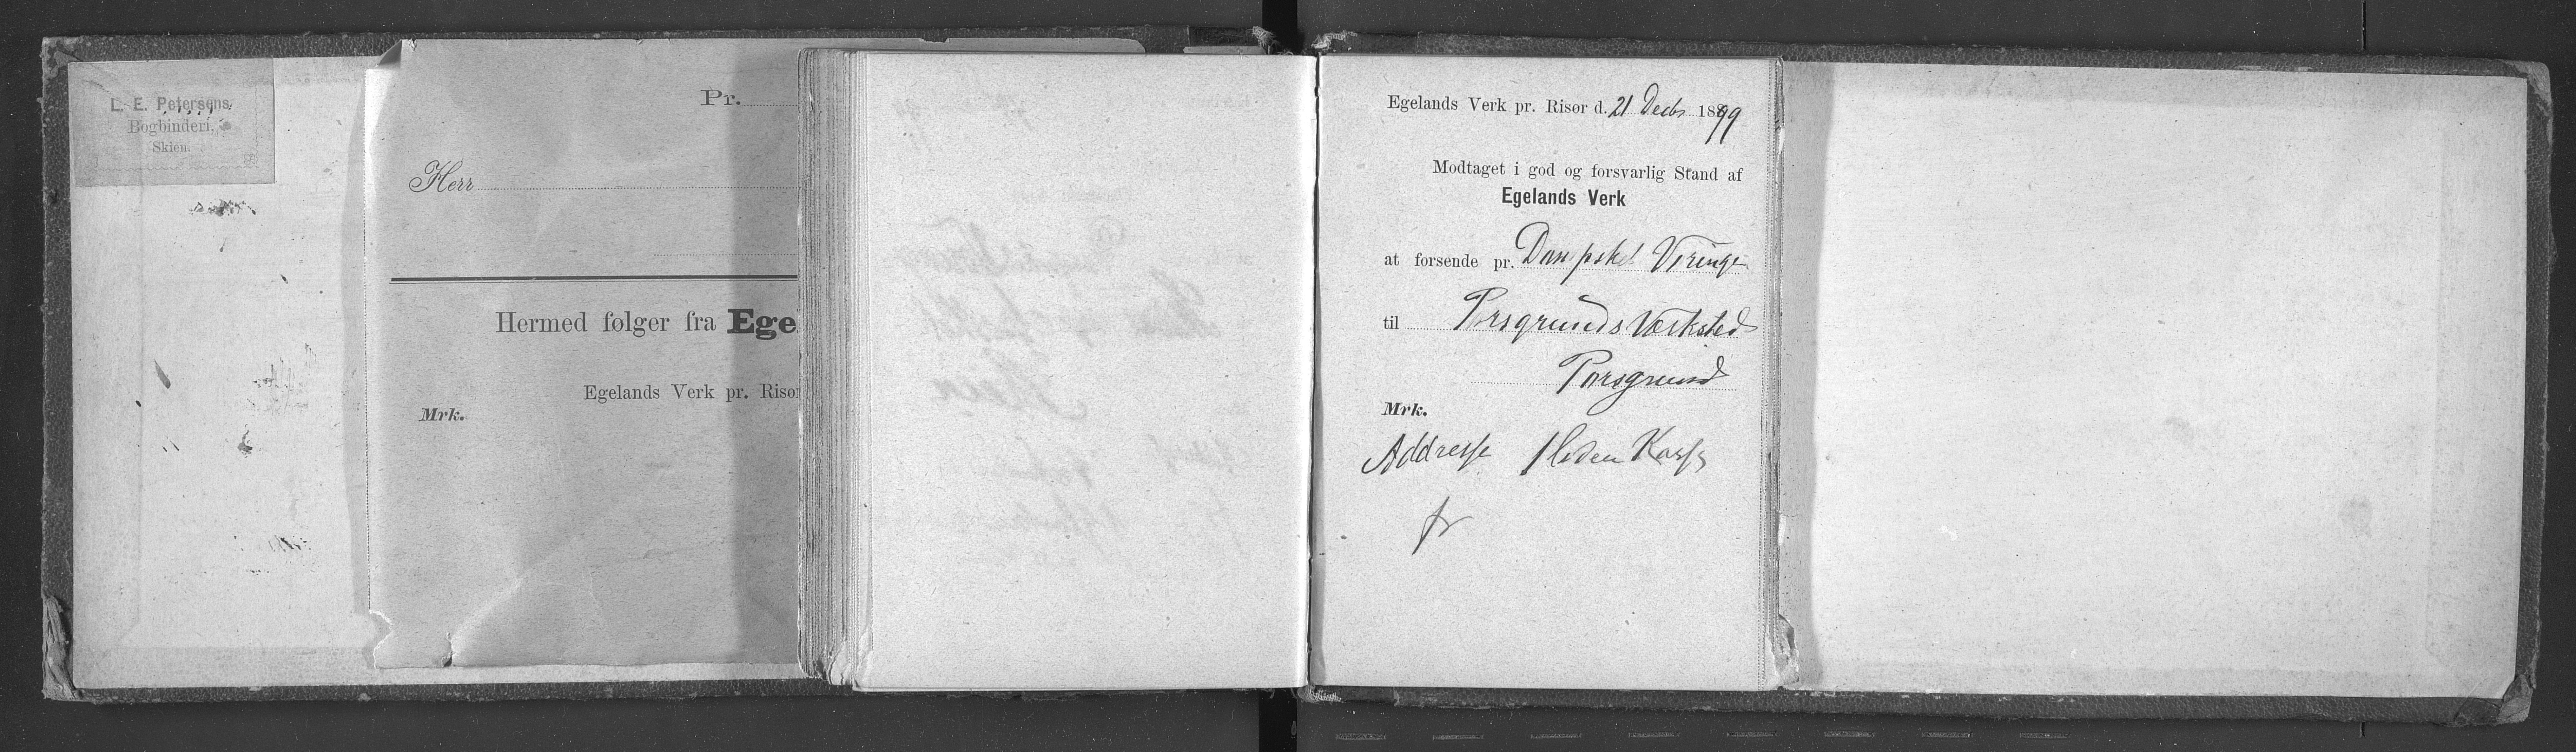 L. E. Petersens
Bogbinderi,
Skien.
Pr.
Herr
Hermed følger fra Ege
Egelands Verk pr. Risør
Mrk.
Egelands Verk pr. Risør d. 21 Decbr 1899
Modtaget i god og forsvarlig Stand af
Egelands Verk
at forsende pr. Dampskd Viringe
til Porsgrunds Værksted
Porsgrund
Mrk.
Addresse